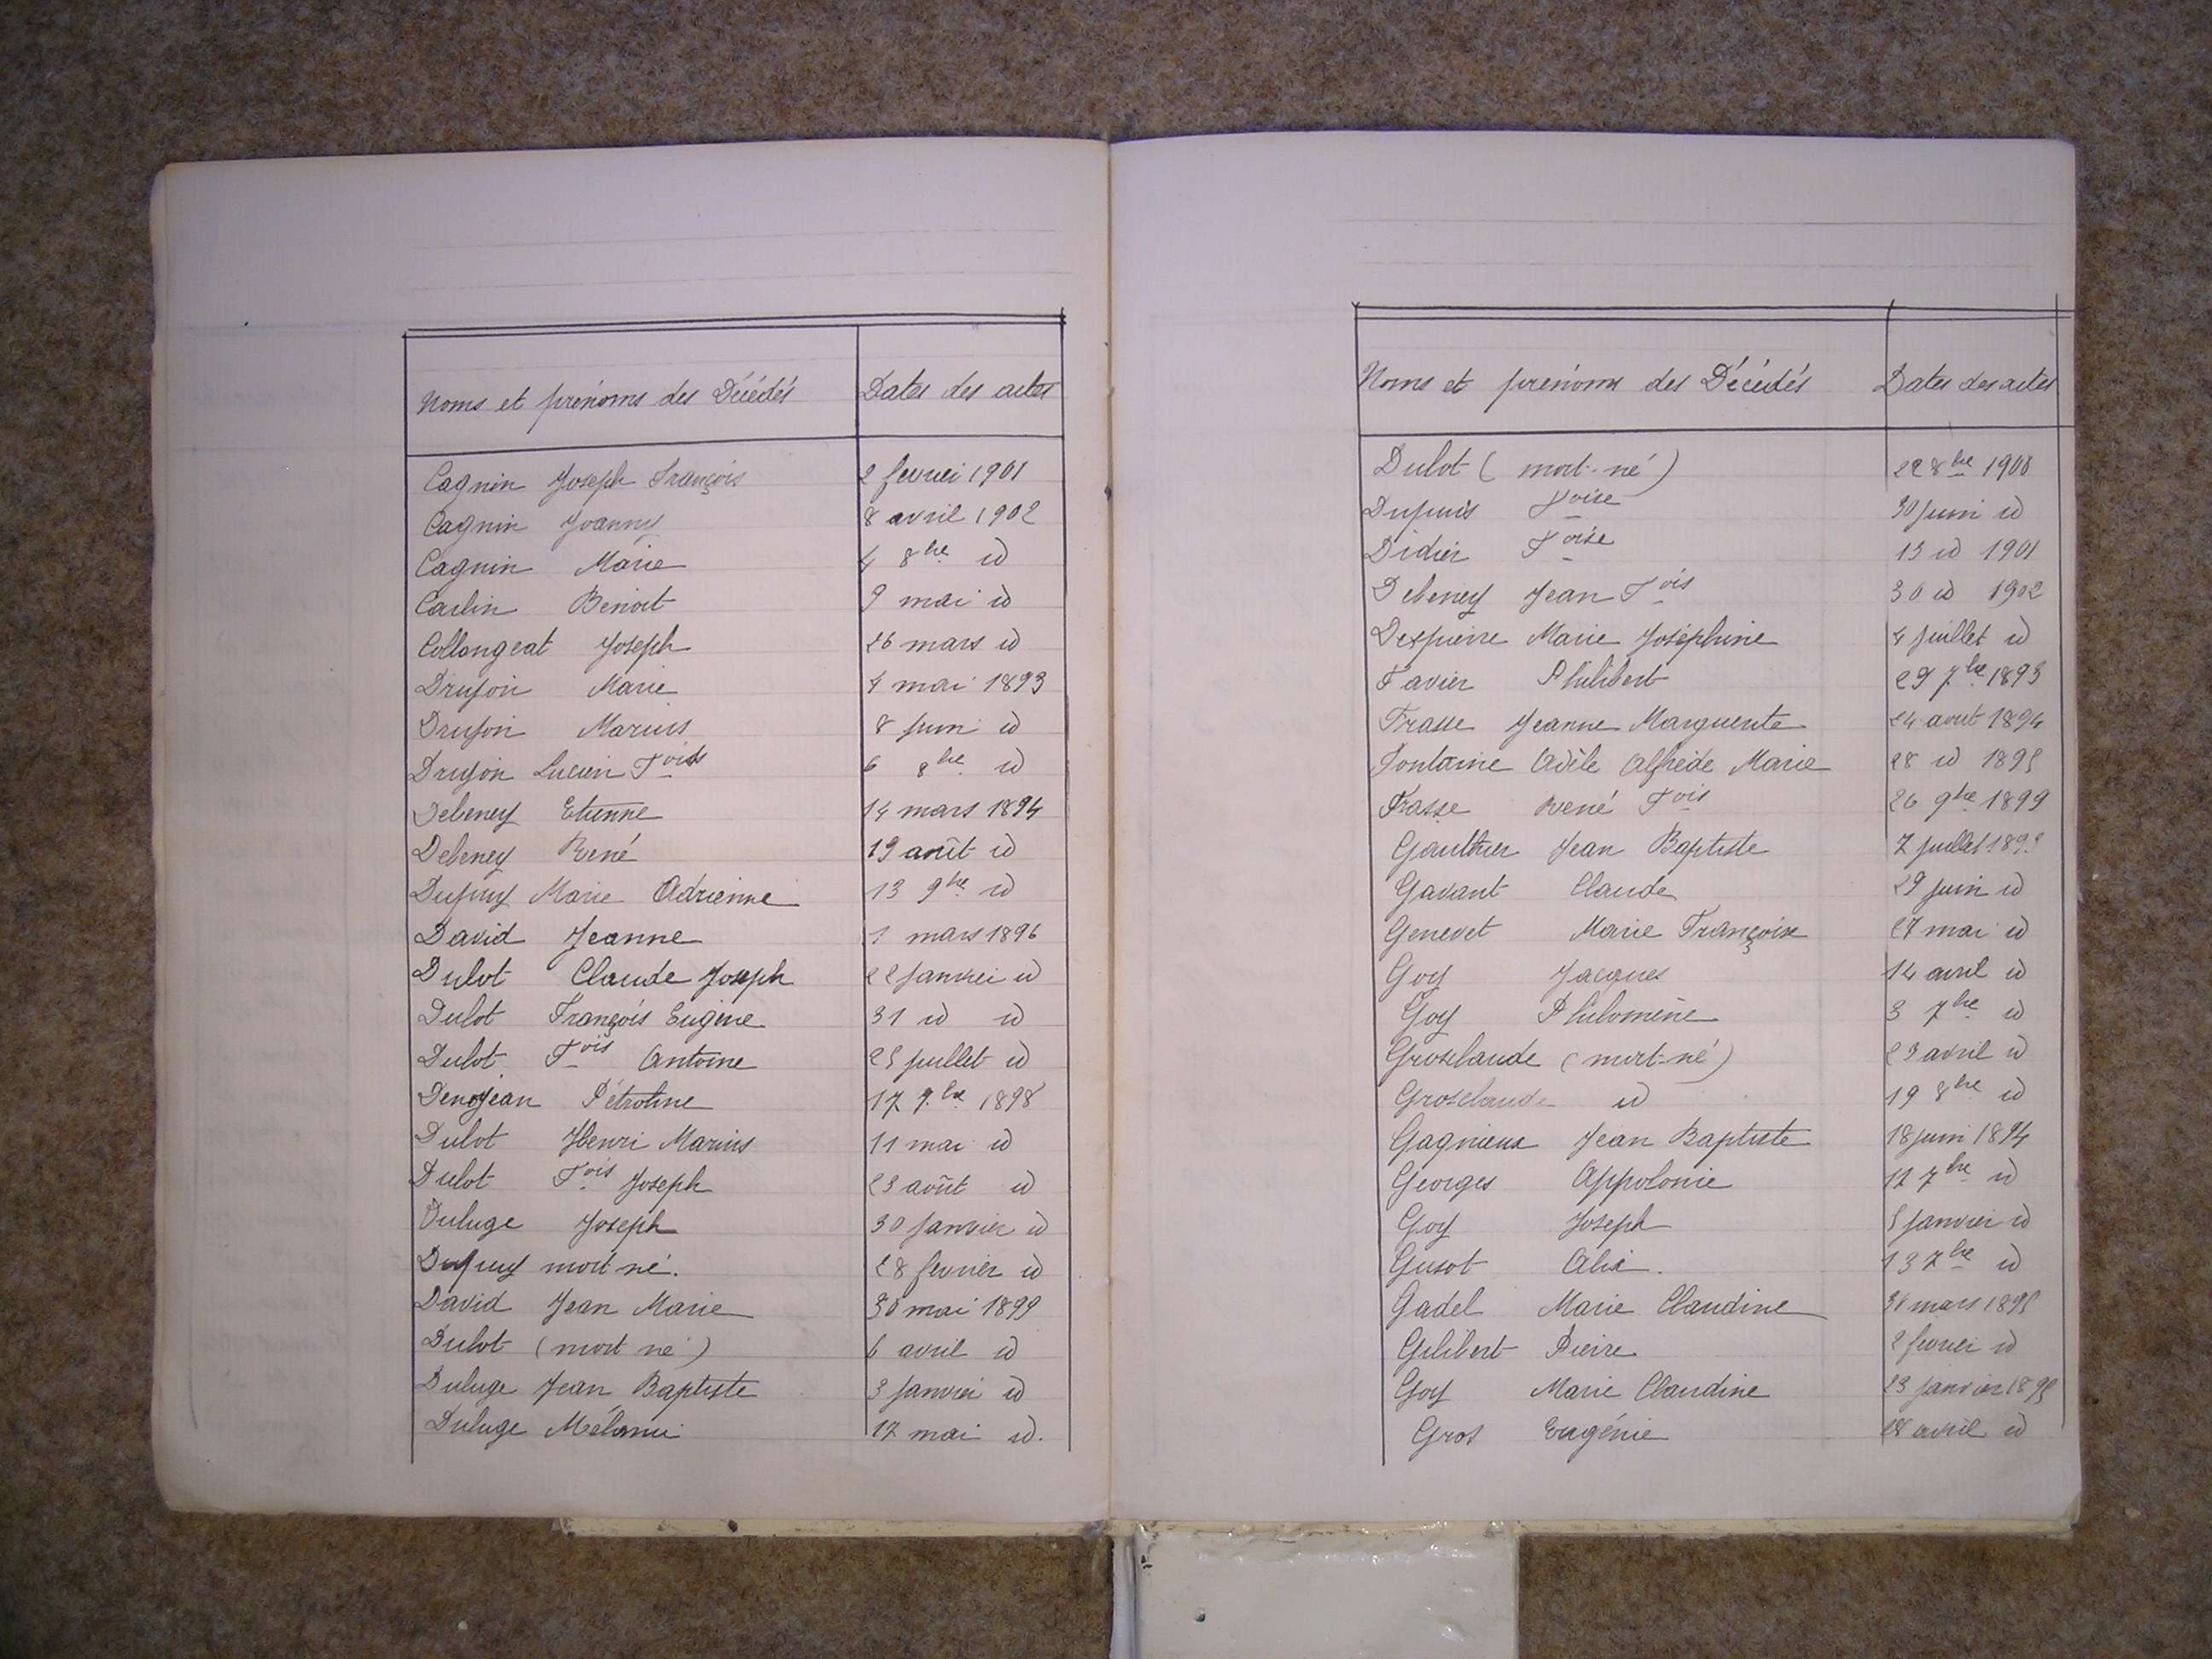 Noms et prénoms des Décédés Dates des actes
Cagnin Joseph François 2 fevrier 1901
Cagnin Joanny 8 avril 1902
Cagnin Marie 4 8bre id
Carlin Benoit 9 mai id
Collongeat Joseph 26 mars id
Drujon Marie 4 mai 1893
Drujon Marius 8 juin id
Drujon Lucien Fois 6 8bre id
Debeney Etienne 14 mars 1894
Debeney René 19 août id
Dupuy Marie Adrienne 13 9bre id
David Jeanne 1 mars 1896
Dulot Claude Joseph 22 janvier id
Dulot François Eugène 31 id id
Dulot Fois Antoine 25 juillet id
Denojean Pétroline 17 bre 1898
Dulot Henri Marius 11 mai id
Dulot Fois Joseph 23 août id
Duluge Joseph 30 janvier id
Dupuy mort né. 28 fevrier id
David Jean Marie 30 mai 1899
Dulot (mort né) 6 avril id
Duluge Jean Baptiste 3 janvier id
Duluge Mélanie 17 mai id.
Noms et prénoms des Décédés Dates des actes
Dulot (mort-né) 22 8bre 1900
Dupuis Foise 30 juin id
Didier Foise 13 id 1901
Debeney Jean Fois 30 id 1902
Despierre Marie Joséphine 4 juillet id
Favier Philibert 29 7bre 1893
Frasse Jeanne Marguerite 24 aout 1894
Fontaine Adèle Alfrède Marie 28 id 1895
Frasse René Fois 26 9bre 1899
Gauthier Jean Baptiste 7 juillet
Gavant Claude 29 juin id
Genevet Marie Françoise 27 mai id
Goy Jacques 14 avril id
Goy Philomène 3 7bre id
Grosclaude (mort-né) 23 avril id
Grosclaude id 19 8bre id
Gagnieux Jean Baptiste 18 juin 1894
Georges Appolonie 12 7bre id
Goy Joseph 5 janvier id
Gusot Alix. 13 7bre id
Gadel Marie Claudine 31 mars 1895
Gilibert Pierre 2 fevrier id
Goy Marie Claudine 23 janvier 1895
Gros Eugénie 28 avril id